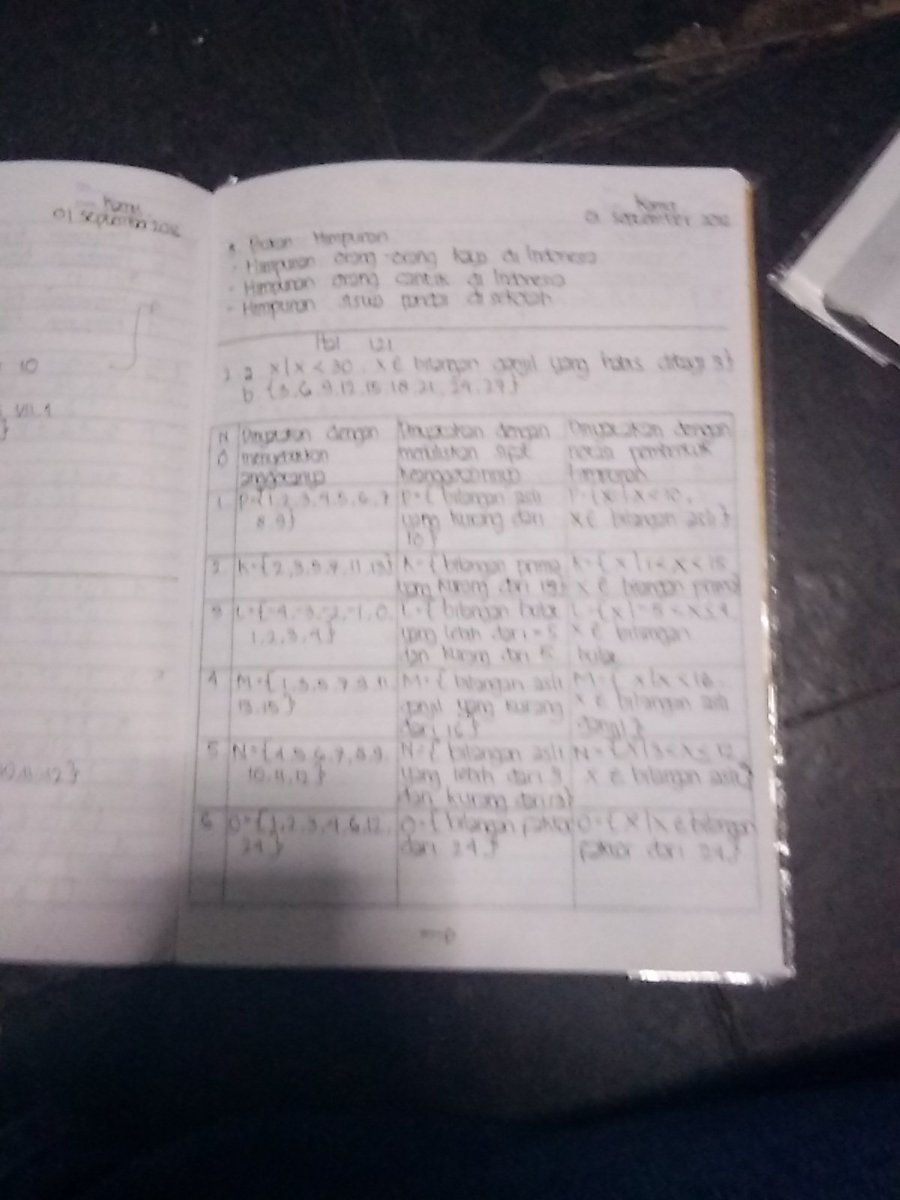 01 September 2016
10
VII.1
}
10,11,12}
Kamis
01 September 2016
Bukan Himpunan
- Himpunan orang-orang kaya di Indonesia
- Himpunan orang cantik di Indonesia
- Himpunan siswa pandai di sekolah
121
a x|x < 30, x ∈ bilangan ganjil yang habis dibagi 3}
b {3,6,9,12,15,18,21,24,27}
NO
Dinyatakan dengan
menyebutkan
anggotanya
Dinyatakan dengan
menuliskan sifat
keanggotaannya
Dinyatakan dengan
notasi pembentuk
himpunan
1
P={1,2,3,4,5,6,7
8,9}
P={ bilangan asli
yang kurang dari
10}
P={x|x<10,
x ∈ bilangan asli}
2
K={2,3,5,7,11,13}
K={ bilangan prima
yang kurang dari 15}
K={x|1<x<15
x ∈ bilangan prima
3
L={-4,-3,-2,-1,0
1,2,3,4}
L={ bilangan bulat
yang lebih dari -5
dan kurang dari 5
L={x|-5<x≤4
x ∈ bilangan
bulat
4
M={1,3,5,7,9,11
13,15}
M={ bilangan asli
ganjil yang kurang
dari 16}
M={ x|x<16
x ∈ bilangan asli
ganjil}
5
N={4,5,6,7,8,9
10,11,12}
N={ bilangan asli
yang lebih dari 3
dan kurang dari 13}
N={x|3<x≤12
x ∈ bilangan asli}
6
O={1,2,3,4,6,12,
24}
O={ bilangan faktor
dari 24}
O={x|x ∈ bilangan
faktor dari 24}